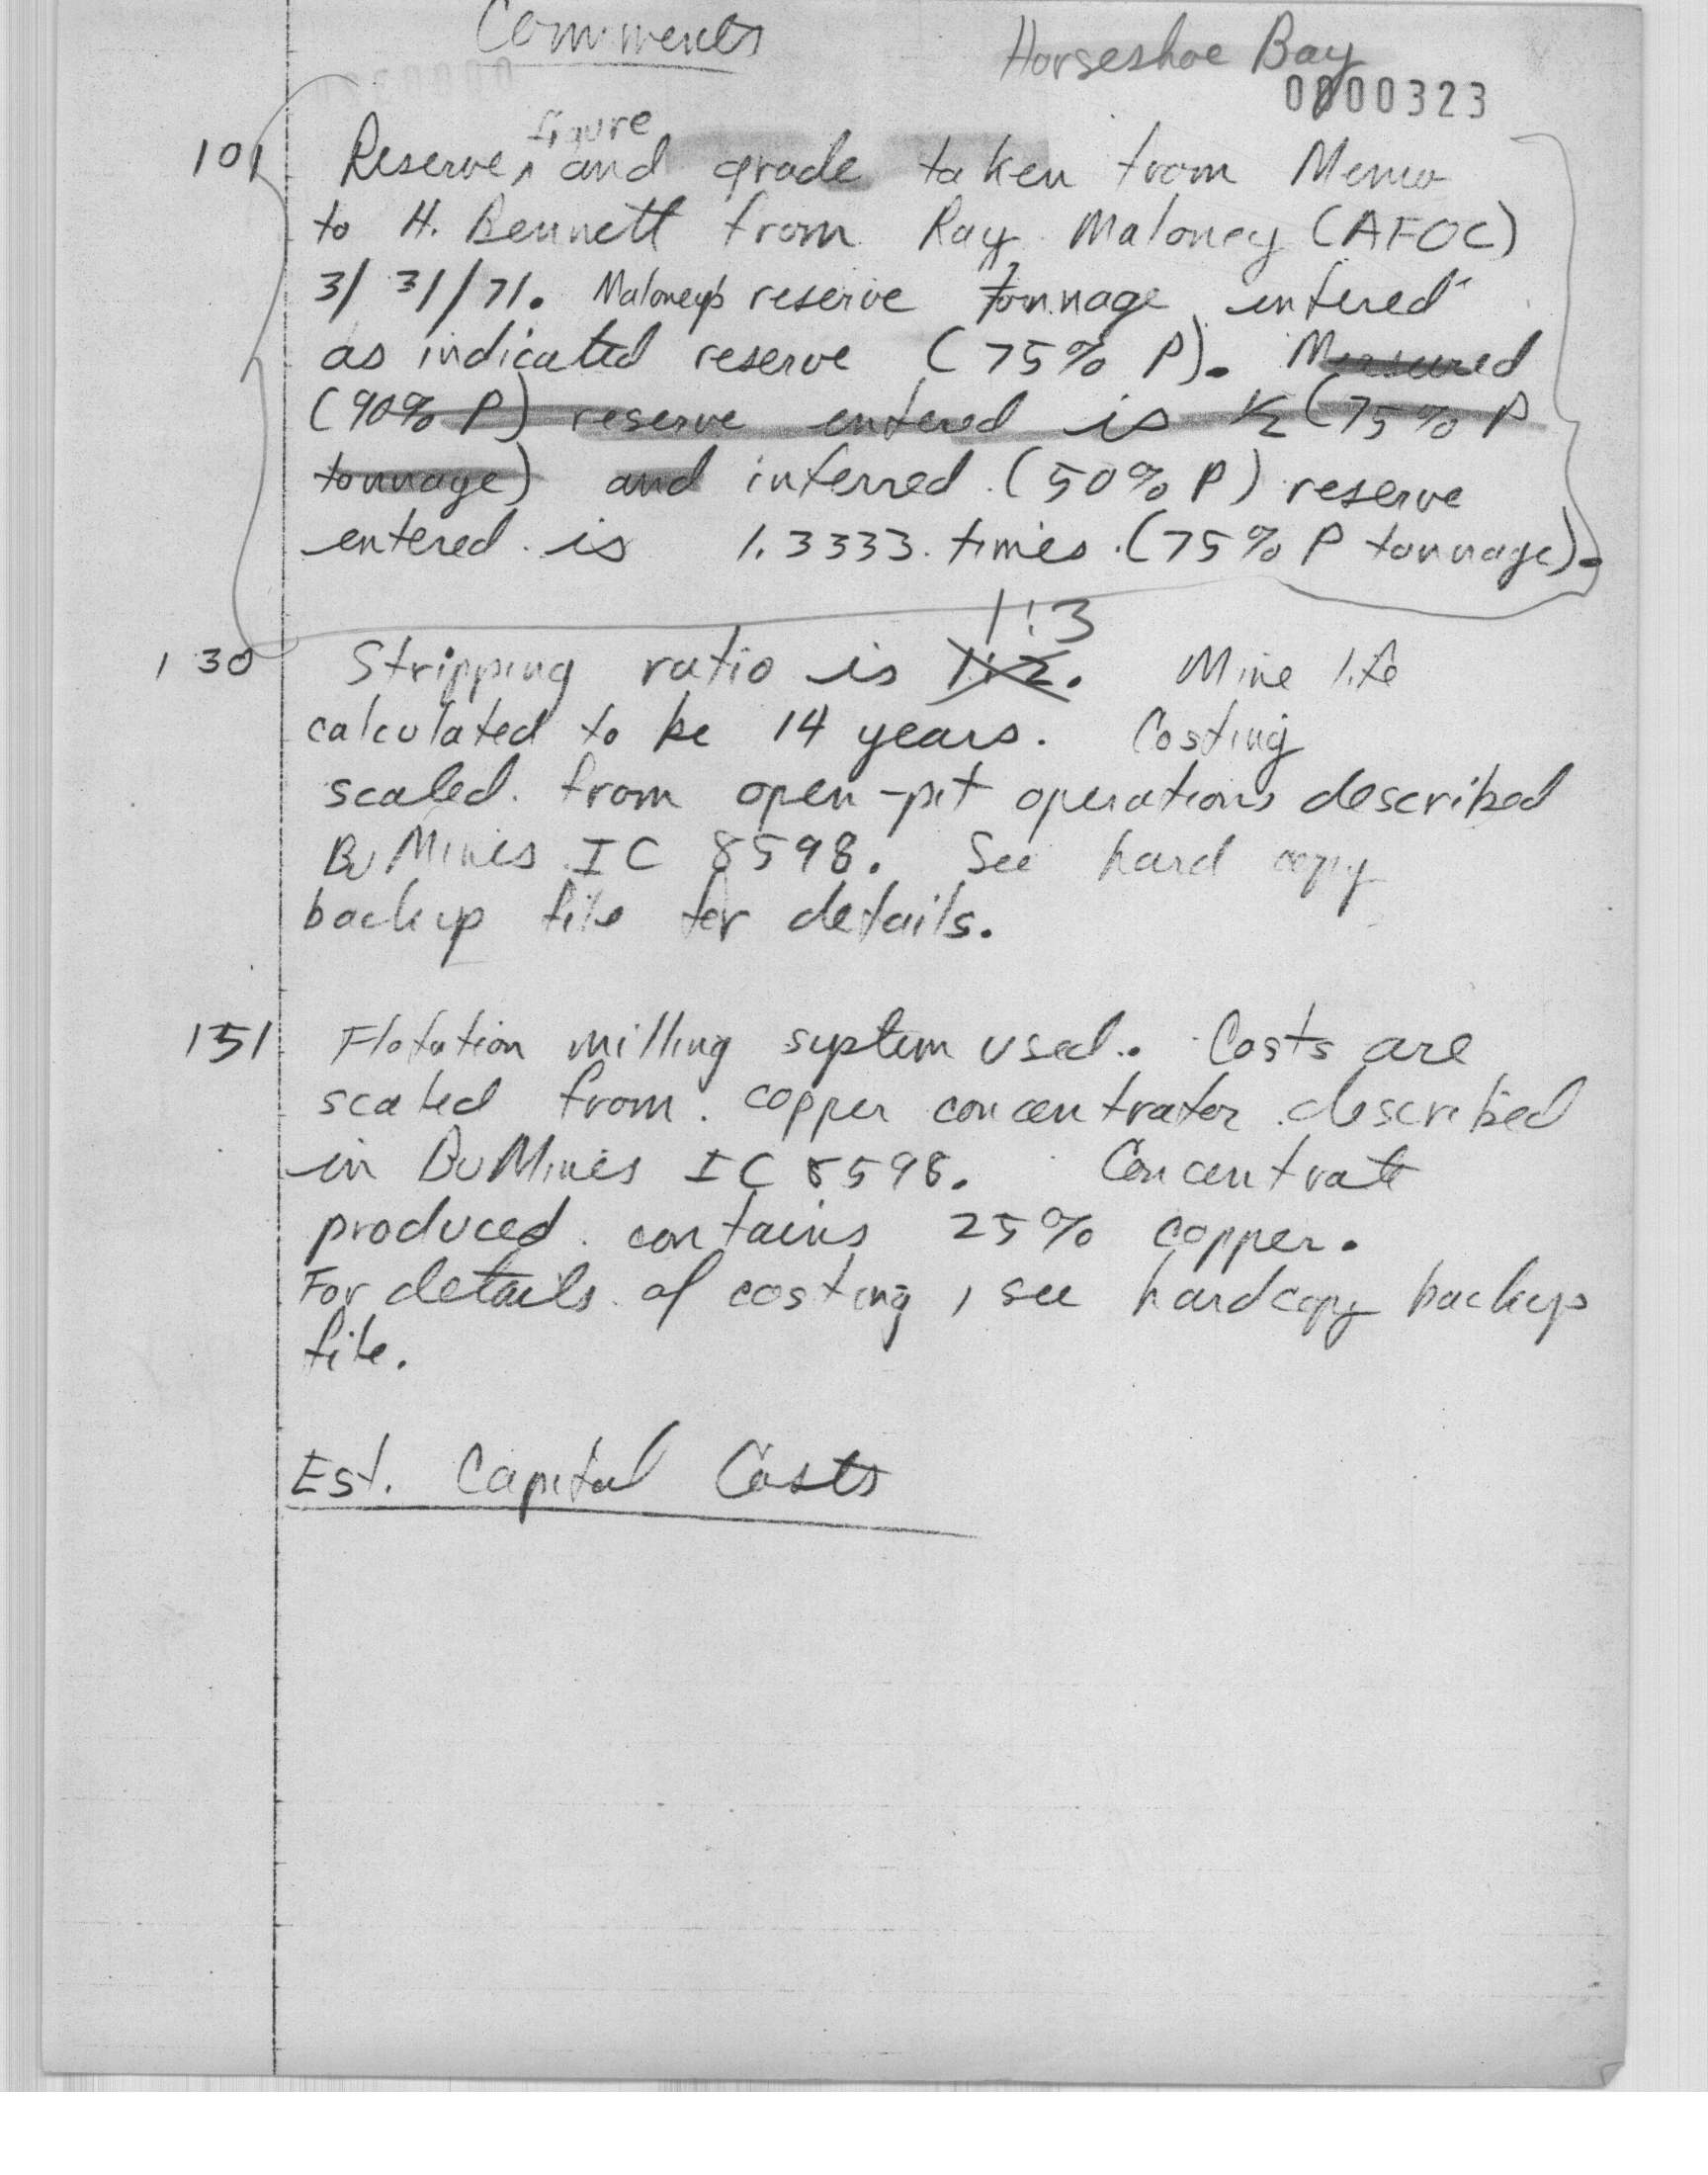 Comments
Horseshoe Bay
0000323
figure
101 Reserve, and grade taken from Memo
to H. Bennett from Ray Maloney (AFOC)
3/31/71. Maloney's reserve tonnage entered
as indicated reserve (75% P). Measured
(90% P) reserve entered is 1/2 (75% P
tonnage) and inferred (50% P) reserve
entered is 1.3333 times (75% P tonnage).
1:3
130 Stripping ratio is 1:2. Mine life
calculated to be 14 years. Costing
scaled from open-pit operations described
BuMines IC 8598. See hard copy
backup file for details.
151 Flotation milling system used. Costs are
scaled from copper concentrator described
in BuMines IC 8598. Concentrate
produced contains 25% copper.
For details of costing, see hardcopy backup
file.
Est. Capital Costs